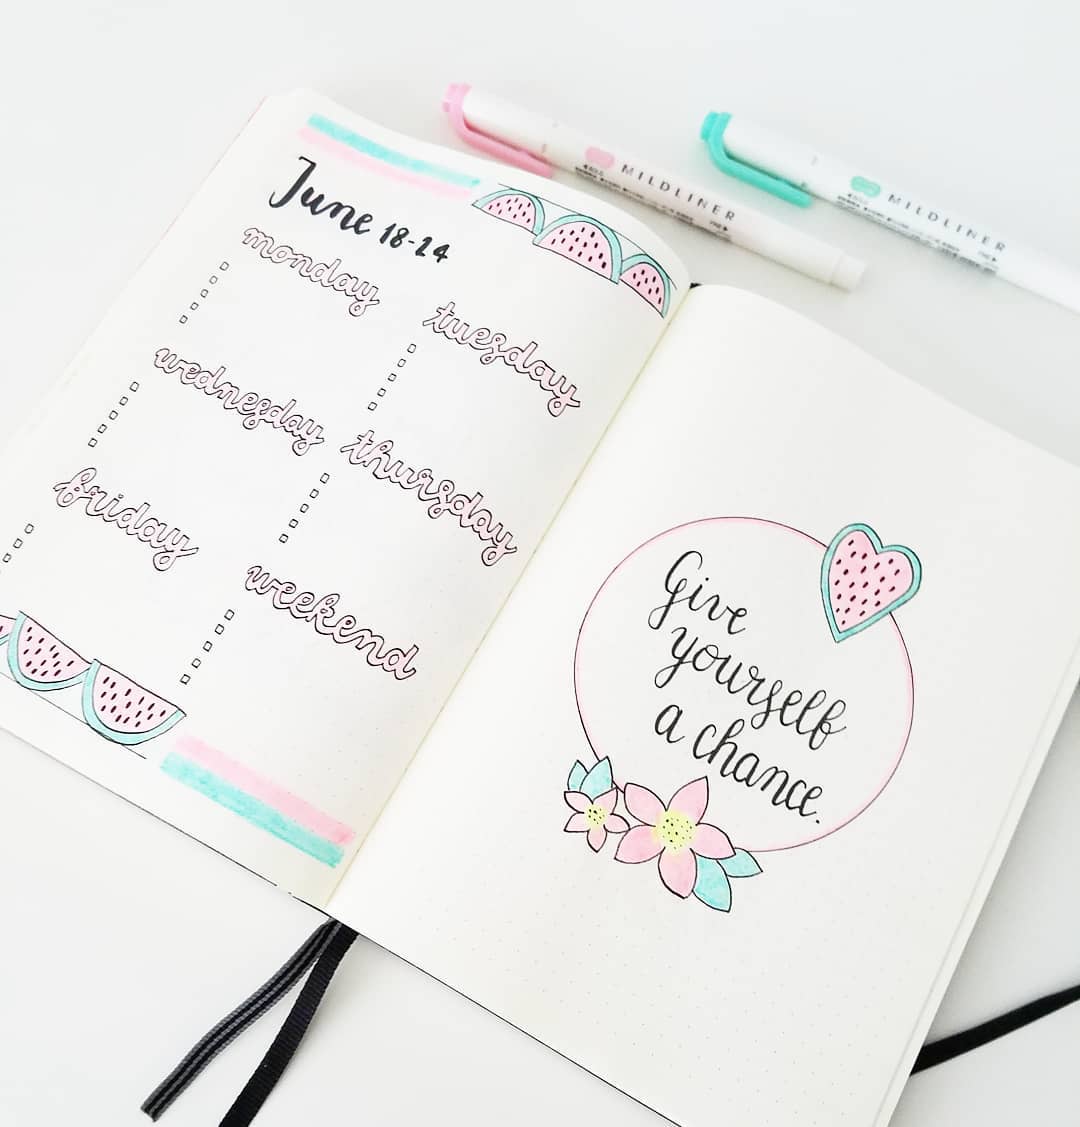 June 18-24
monday
tuesday
wednesday
thursday
friday
weekend
Give
yourself
a chance.
MILDLINER
MILDLINER